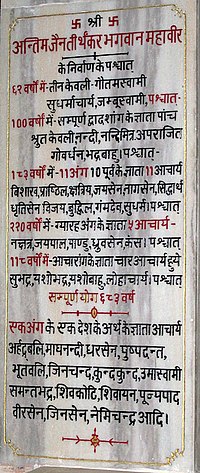 卐 श्री 卐
अन्तिम जैन तीर्थंकर भगवान महावीर
के निर्वाण के पश्चात
६२ वर्षों में - तीन केवली - गौतम स्वामी
सुधर्माचार्य, जम्बूस्वामी, पश्चात-
100 वर्षों में - सम्पूर्ण द्वादशांग के ज्ञाता पांच
श्रुत केवली, नन्दी, नन्दिमित्र, अपराजित
गोवर्धन, भद्रबाहु। पश्चात-
१८३ वर्षों में - 11 अंग 10 पूर्व के ज्ञाता 11 आचार्य
विशारव, प्राष्ठिल, क्षत्रिय, जयसेन, नागसेन, सिद्धार्थ
धृतिसेन विजय, बुद्धिल, गंगदेव, सुधर्म। पश्चात-
220 वर्षों में - ग्यारह अंग के ज्ञाता ५ आचार्य-
नक्षत्र, जयपाल, पाण्डु, ध्रुवसेन, कंस। पश्चात-
११८ वर्षों में - आचारांग के ज्ञाता चार आचार्य हुये
सुभद्र, यशोभद्र, यशोबाहु, लोहाचार्य। पश्चात-
सम्पूर्ण योग ६८३ वर्ष
एक अंग के एक देश के अर्थ के ज्ञाता आचार्य
अर्हद्बलि, माघनन्दी, धरसेन, पुष्पदन्त,
भूतवलि, जिनचन्द्र, कुन्दकुन्द, उमास्वामी
समन्तभद्र, शिवकोटि, शिवायन, पूज्यपाद
वीरसेन, जिनसेन, नेमिचन्द्र आदि।